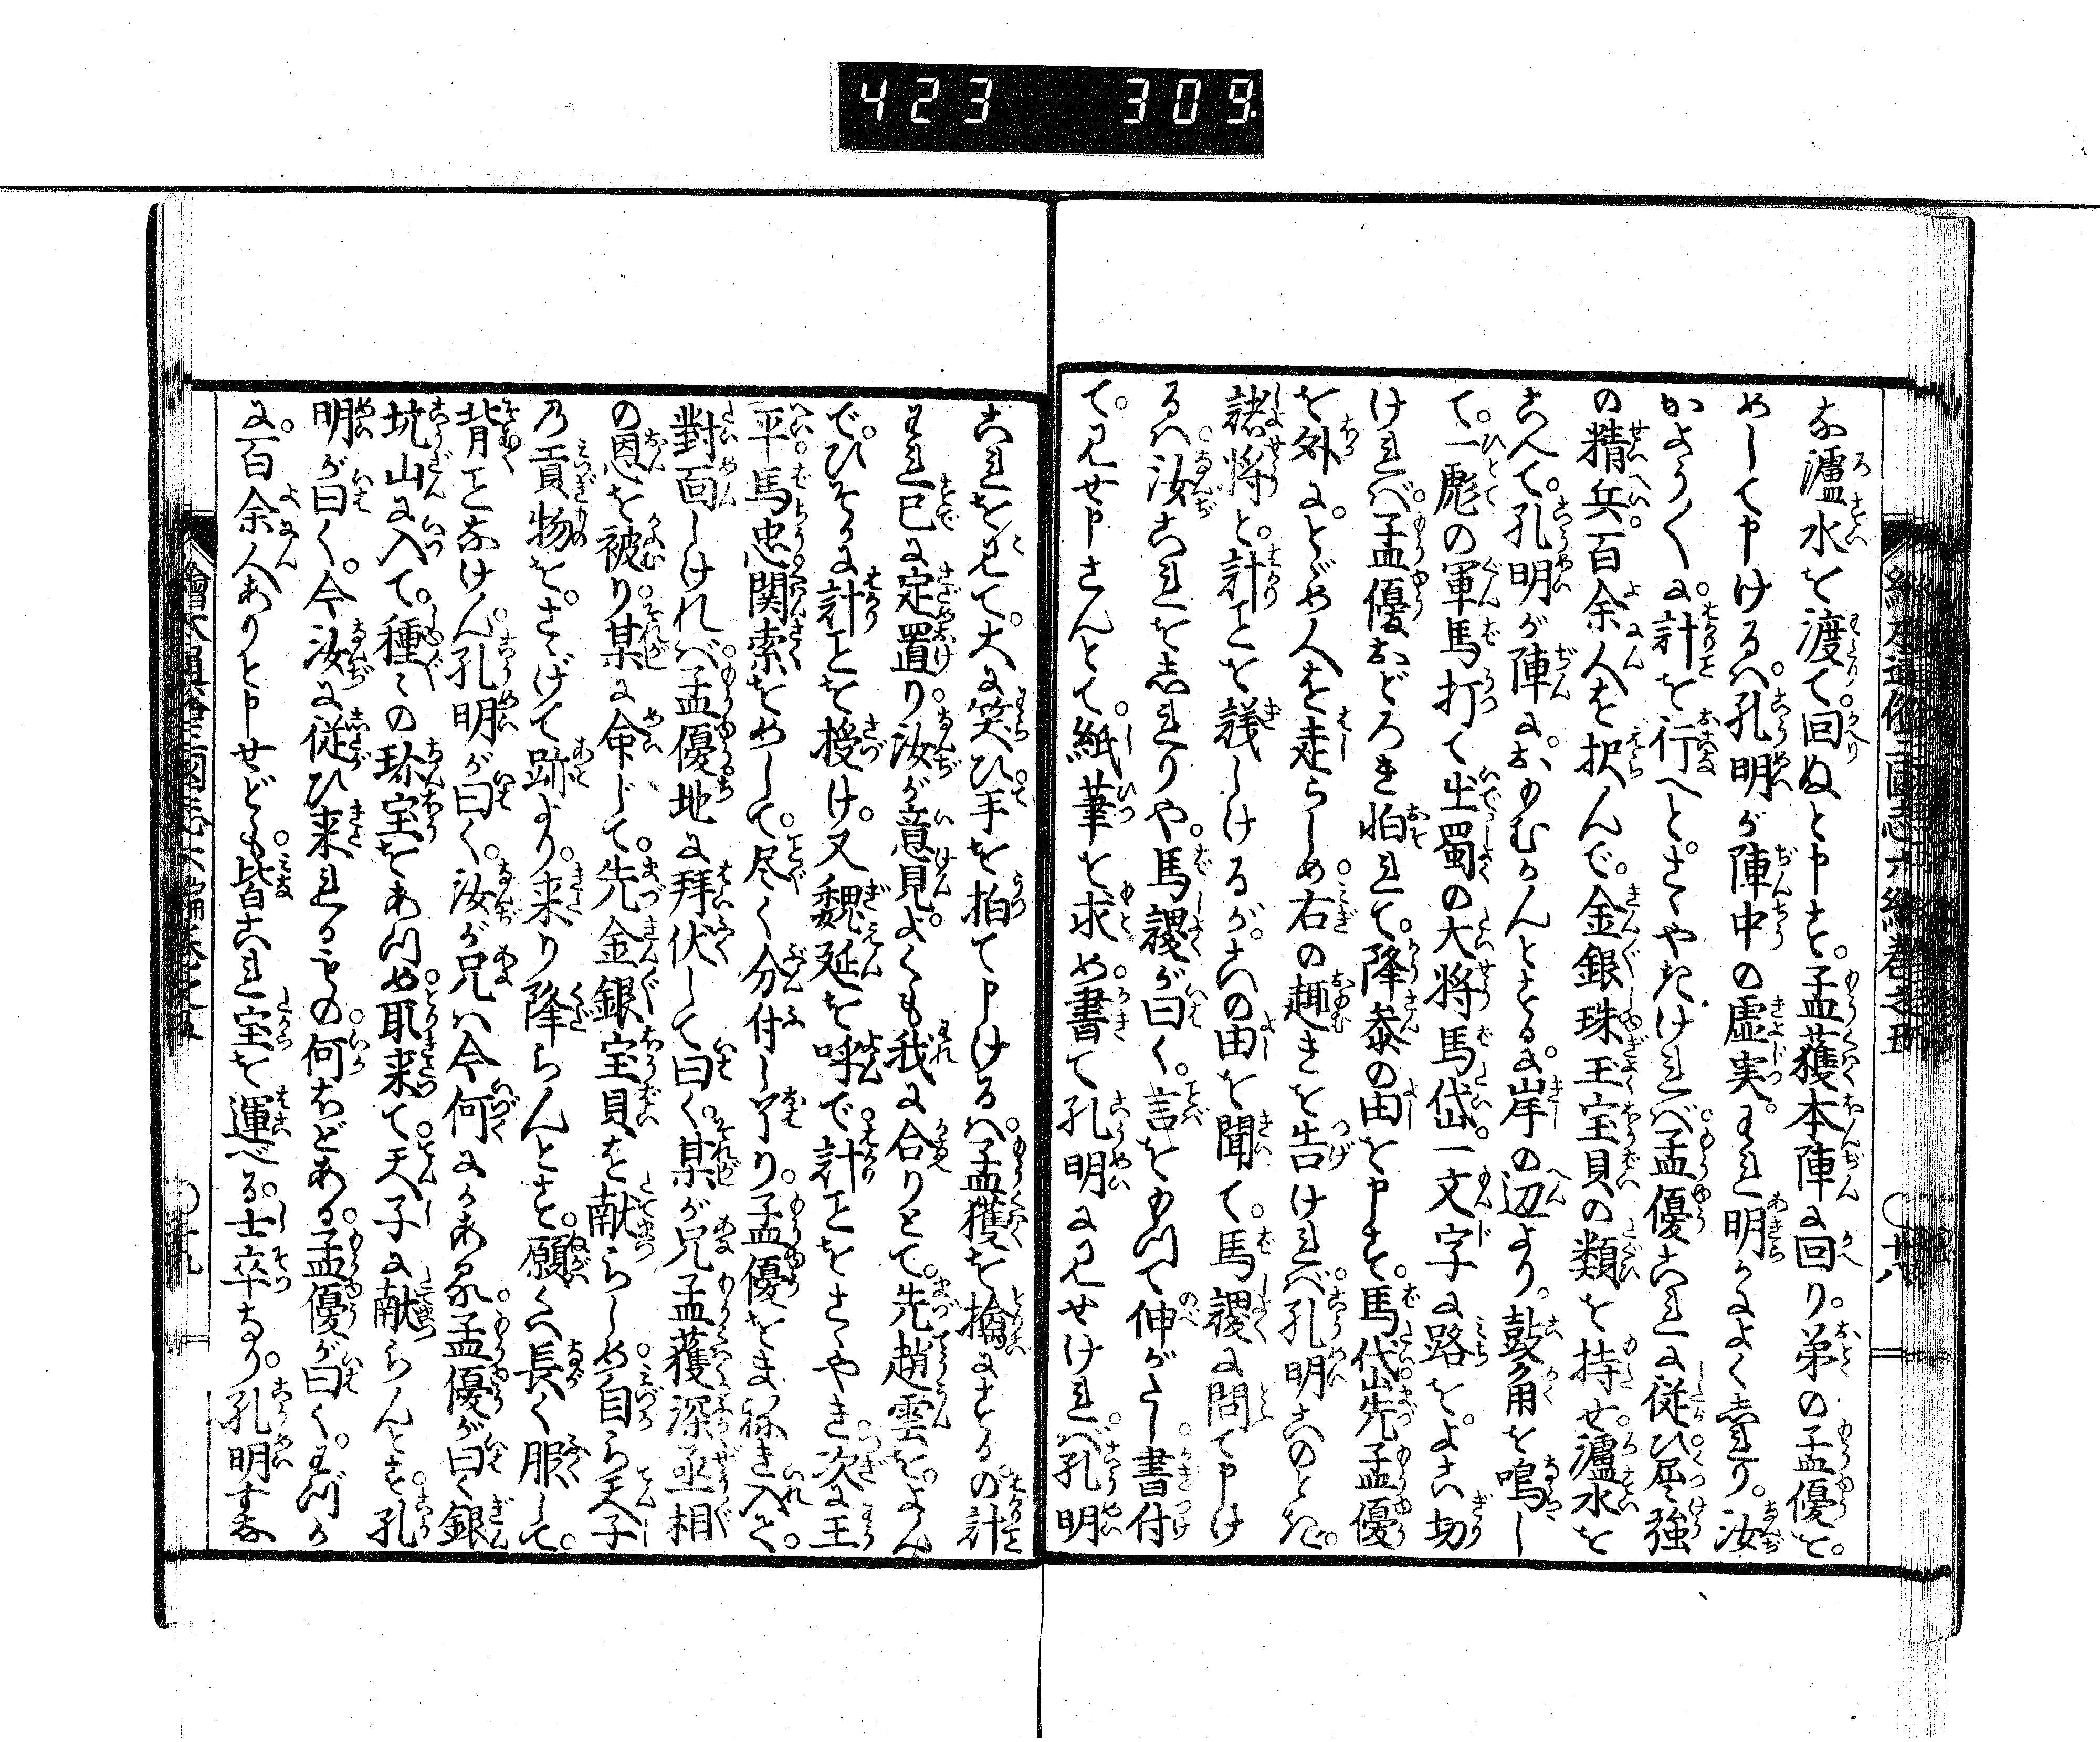 423 309
な瀘水を渡て回ぬと申す。孟獲本陣に回り。弟の孟優を。
めして申けるハ。孔明が陣中の虚実。われ明かによく走れり。汝
かようくに計を行へと。さゝやきけれバ。孟優これに従ひ。屈強
の精兵。百余人を択んで。金銀珠玉宝貝の類を持せ。瀘水を
こへて。孔明が陣におもむかんとするに。岸の辺より。鼓角を鳴し
て。一彪の軍馬打て出。蜀の大将馬岱。一文字に路を。よこ切
けれバ。孟優おどろき怕れて。降参の由を申す。馬岱。先孟優
を外に。とゞめ人を走らしめ。右の趣きを告けれバ。孔明このとき。
諸将と。計ことを議しけるが。此の由を聞て。馬謖に問て申け
るハ。汝これをしれりや。馬謖が曰く。言をもつて伸がたし。書付
て。見せ申さんとて。紙筆を求め。書て孔明に見せけれバ。孔明
これを見て。大に笑ひ。手を拍て申けるハ。孟獲を擒にするの。計
われ已に定置り。汝が意見。よくも我に合りとて。先趙雲を。よん
で。ひそかに計ことを授け。又魏延を呼で。計ことをさゝやき次に王
平。馬忠関索をめして。尽く分付し畢り。孟優をまねき入て。
對面しけれバ。孟優地に拜伏して曰く。某が兄孟獲。深丞相
の恩を被り。某に命じて。先金銀宝貝を献らしめ。自ら天子
乃貢物を。さゝげて跡より。来り降らんとす。願くハ長く服して。
背ことなけん。孔明が曰く。汝が兄ハ今何くにかある。孟優が曰く銀
坑山に入て。種〻の珎宝をあつめ。取来て。天子に献らんとす。孔
明が曰く。今汝に従ひ来れるもの。何ほどある。孟優が曰く。わづか
に。百余人ありと申せども。皆これ宝を運べる。士卒なり。孔明すな